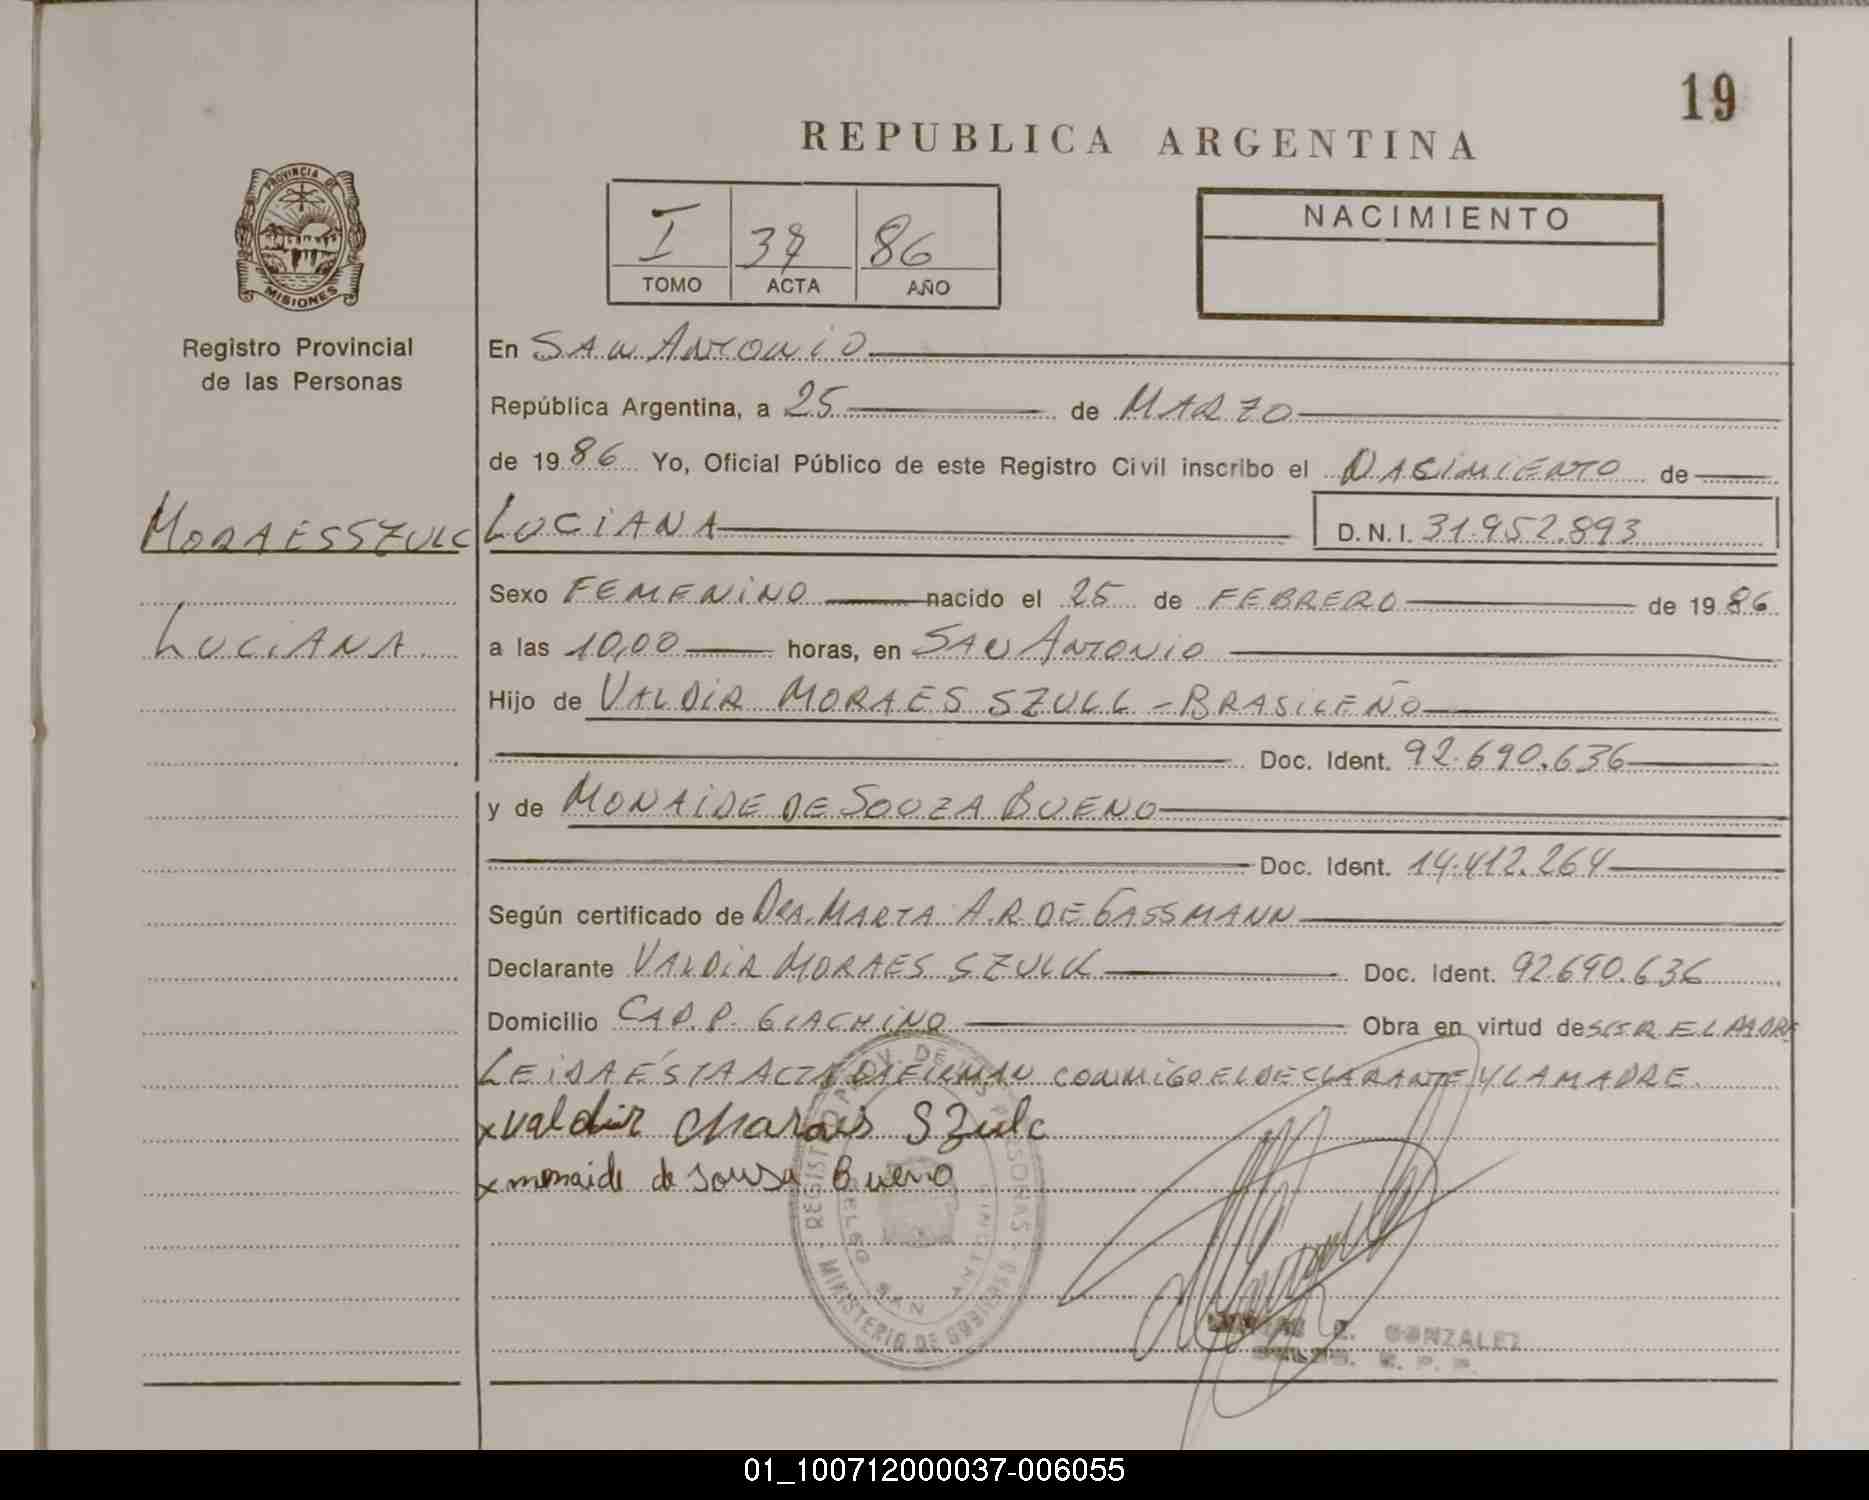 19
REPUBLICA ARGENTINA
PROVINCIA DE
MISIONES
I 37 86
TOMO ACTA AÑO
NACIMIENTO
Registro Provincial
de las Personas
En SAN ANTONIO
República Argentina, a 25 de MARZO
de 1986 Yo, Oficial Público de este Registro Civil inscribo el NACIMIENTO de
MORAES SZULC LUCIANA D.N.I. 31.952.893
Sexo FEMENINO nacido el 25 de FEBRERO de 1986
LUCIANA a las 10,00 horas, en SAN ANTONIO
Hijo de VALDIR MORAES SZULC - BRASILEÑO
Doc. Ident. 92.690.636
y de MONAIDE DE SOUZA BUENO
Doc. Ident. 14.412.264
Según certificado de DRA. MARTA A.R DE GASSMANN
Declarante VALDIR MORAES SZULC Doc. Ident. 92.690.636
Domicilio CAP. P. GIACHINO Obra en virtud de SER EL PADRE
LEIDA ÉSTA ACTA LA FIRMAN CONMIGO EL DECLARANTE Y LA MADRE.
x valdir Moraes SZulc
x monaide de sousa Bueno
REGISTRO PROV. DE LAS PERSONAS
DELEG SAN ANTONIO
MINISTERIO DE GOBIERNO
E. GONZALEZ
R. P. P.
01_100712000037-006055